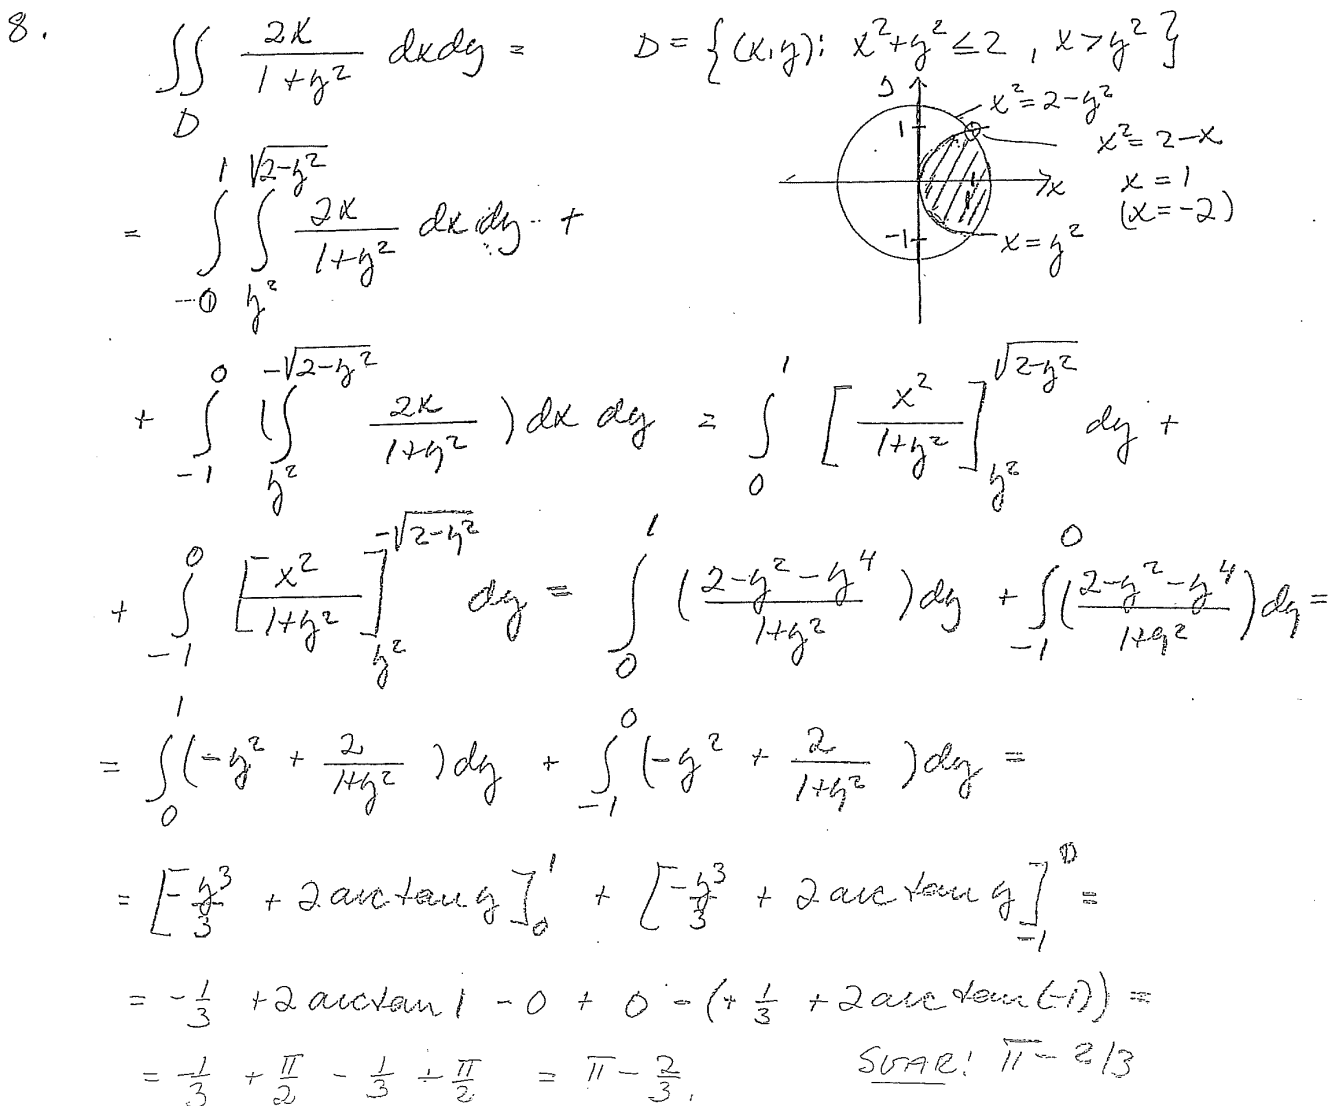 8. ∬_D 2x/(1+y²) dxdy = D = {(x,y): x²+y² ≤ 2, x > y²}
= ∫_{-0}^{1} ∫_{y²}^{√(2-y²)} 2x/(1+y²) dx dy +
1
-1
x
x² = 2-y²
x² = 2-x
x = 1
(x = -2)
x = y²
+ ∫_{-1}^{0} (∫_{y²}^{-√(2-y²)} 2x/(1+y²) ) dx dy = ∫_0^1 [x²/(1+y²)]_{y²}^{√(2-y²)} dy +
+ ∫_{-1}^{0} [x²/(1+y²)]_{y²}^{-√(2-y²)} dy = ∫_0^1 ((2-y²-y⁴)/(1+y²)) dy + ∫_{-1}^0 ((2-y²-y⁴)/(1+y²)) dy =
= ∫_0^1 (-y² + 2/(1+y²)) dy + ∫_{-1}^0 (-y² + 2/(1+y²)) dy =
= [-y³/3 + 2 arctan y]_0^1 + [-y³/3 + 2 arctan y]_{-1}^0 =
= -1/3 + 2 arctan 1 - 0 + 0 - (+1/3 + 2 arctan(-1)) =
= -1/3 + π/2 - 1/3 + π/2 = π - 2/3. SVAR! π - 2/3